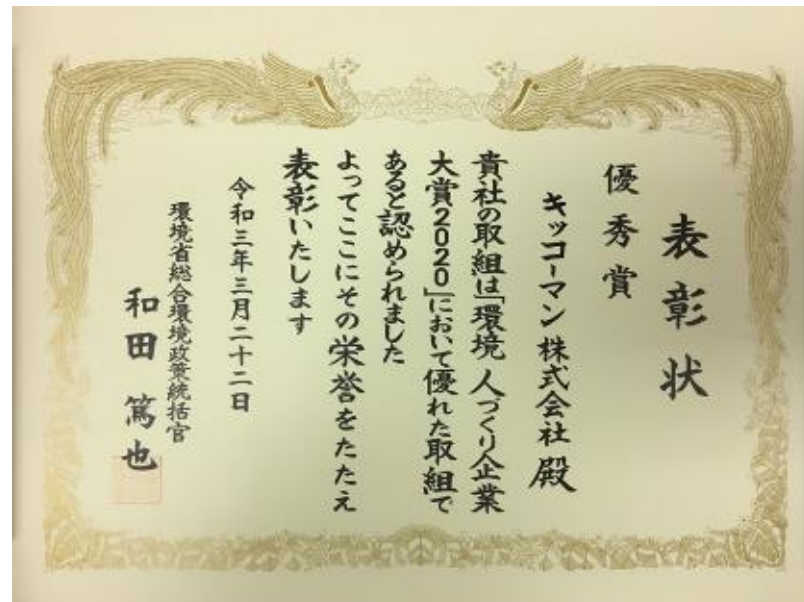 表彰状
優秀賞
キッコーマン株式会社 殿
貴社の取組は「環境 人づくり企業
大賞2020」において優れた取組で
あると認められました
よってここにその栄誉をたたえ
表彰いたします
令和三年三月二十二日
環境省総合環境政策統括官
和田 篤也